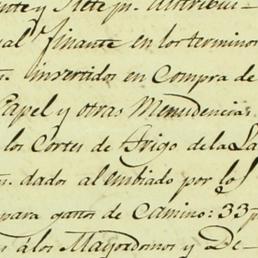 nte y siete p.s Atribui-
ual Finante en los terminos
s. invertidos en Compra de
Papel y otras Menudencias
los Cortes de Trigo de la La
s. dados al embiado por los
para gastos de Camino: 33 p
s a los Mayordomos y De-